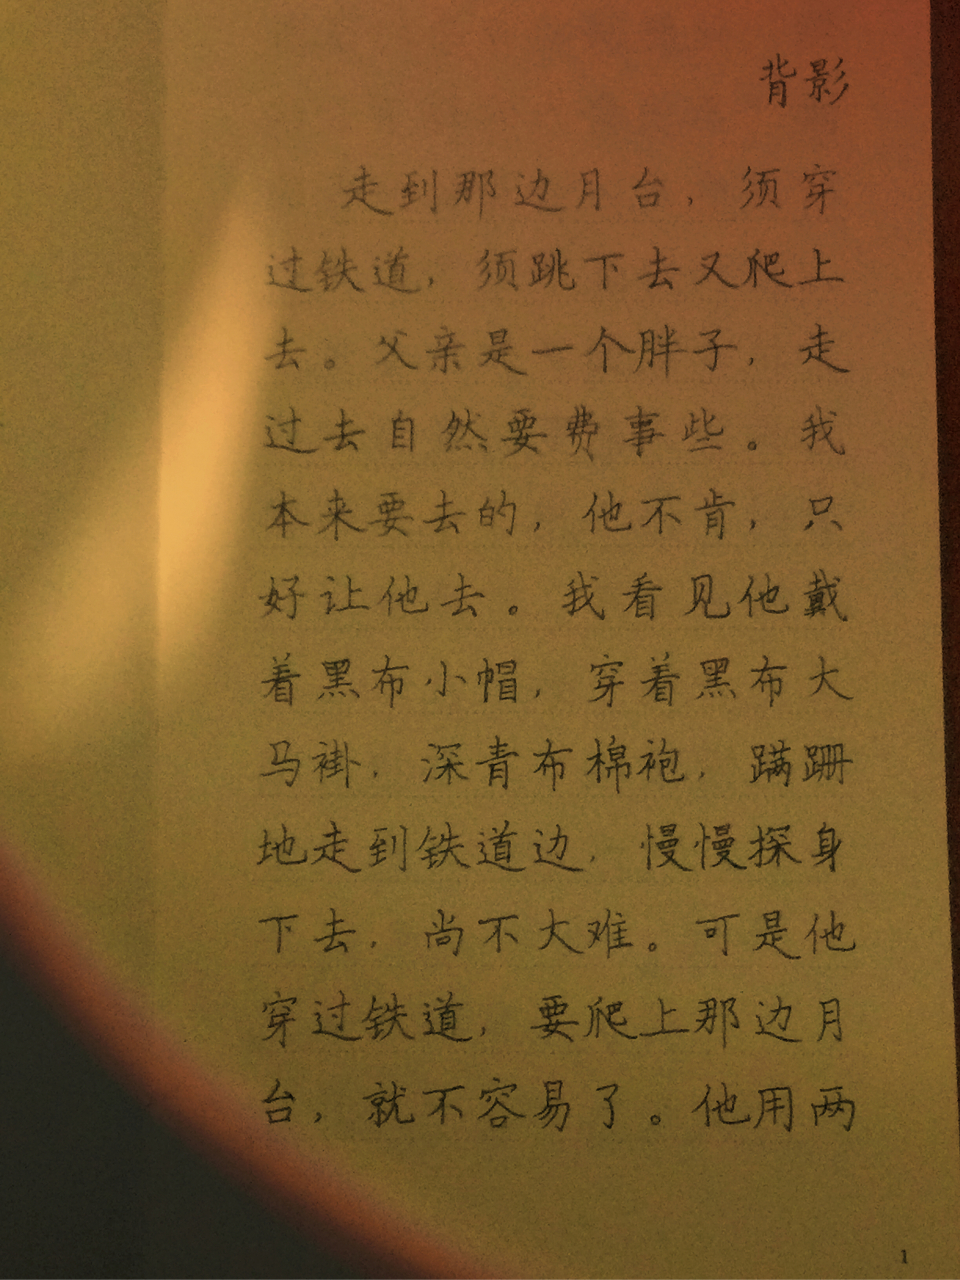 背影
走到那边月台，须穿
过铁道，须跳下去又爬上
去。父亲是一个胖子，走
过去自然要费事些。我
本来要去的，他不肯，只
好让他去。我看见他戴
着黑布小帽，穿着黑布大
马褂，深青布棉袍，蹒跚
地走到铁道边，慢慢探身
下去，尚不大难。可是他
穿过铁道，要爬上那边月
台，就不容易了。他用两
1